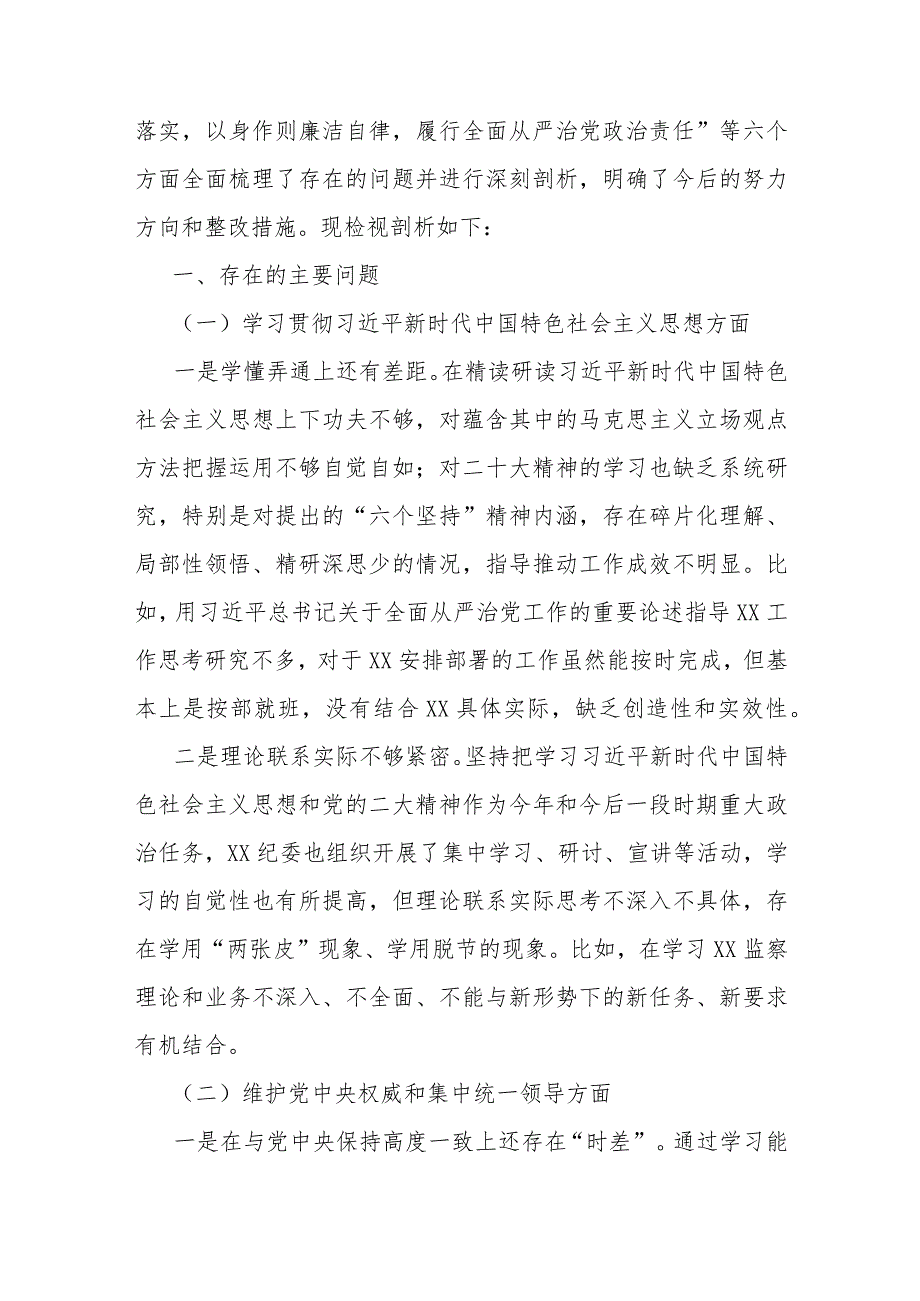 落实，以身作则廉洁自律，履行全面从严治党政治责任”等六个
方面全面梳理了存在的问题并进行深刻剖析，明确了今后的努力
方向和整改措施。现检视剖析如下：
一、存在的主要问题
（一）学习贯彻习近平新时代中国特色社会主义思想方面
一是学懂弄通上还有差距。在精读研读习近平新时代中国特色
社会主义思想上下功夫不够，对蕴含其中的马克思主义立场观点
方法把握运用不够自觉自如；对二十大精神的学习也缺乏系统研
究，特别是对提出的“六个坚持”精神内涵，存在碎片化理解、
局部性领悟、精研深思少的情况，指导推动工作成效不明显。比
如，用习近平总书记关于全面从严治党工作的重要论述指导 XX 工
作思考研究不多，对于 XX 安排部署的工作虽然能按时完成，但基
本上是按部就班，没有结合 XX 具体实际，缺乏创造性和实效性。
二是理论联系实际不够紧密。坚持把学习习近平新时代中国特
色社会主义思想和党的二大精神作为今年和今后一段时期重大政
治任务，XX 纪委也组织开展了集中学习、研讨、宣讲等活动，学
习的自觉性也有所提高，但理论联系实际思考不深入不具体，存
在学用“两张皮”现象、学用脱节的现象。比如，在学习 XX 监察
理论和业务不深入、不全面、不能与新形势下的新任务、新要求
有机结合。
（二）维护党中央权威和集中统一领导方面
一是在与党中央保持高度一致上还存在“时差”。通过学习能